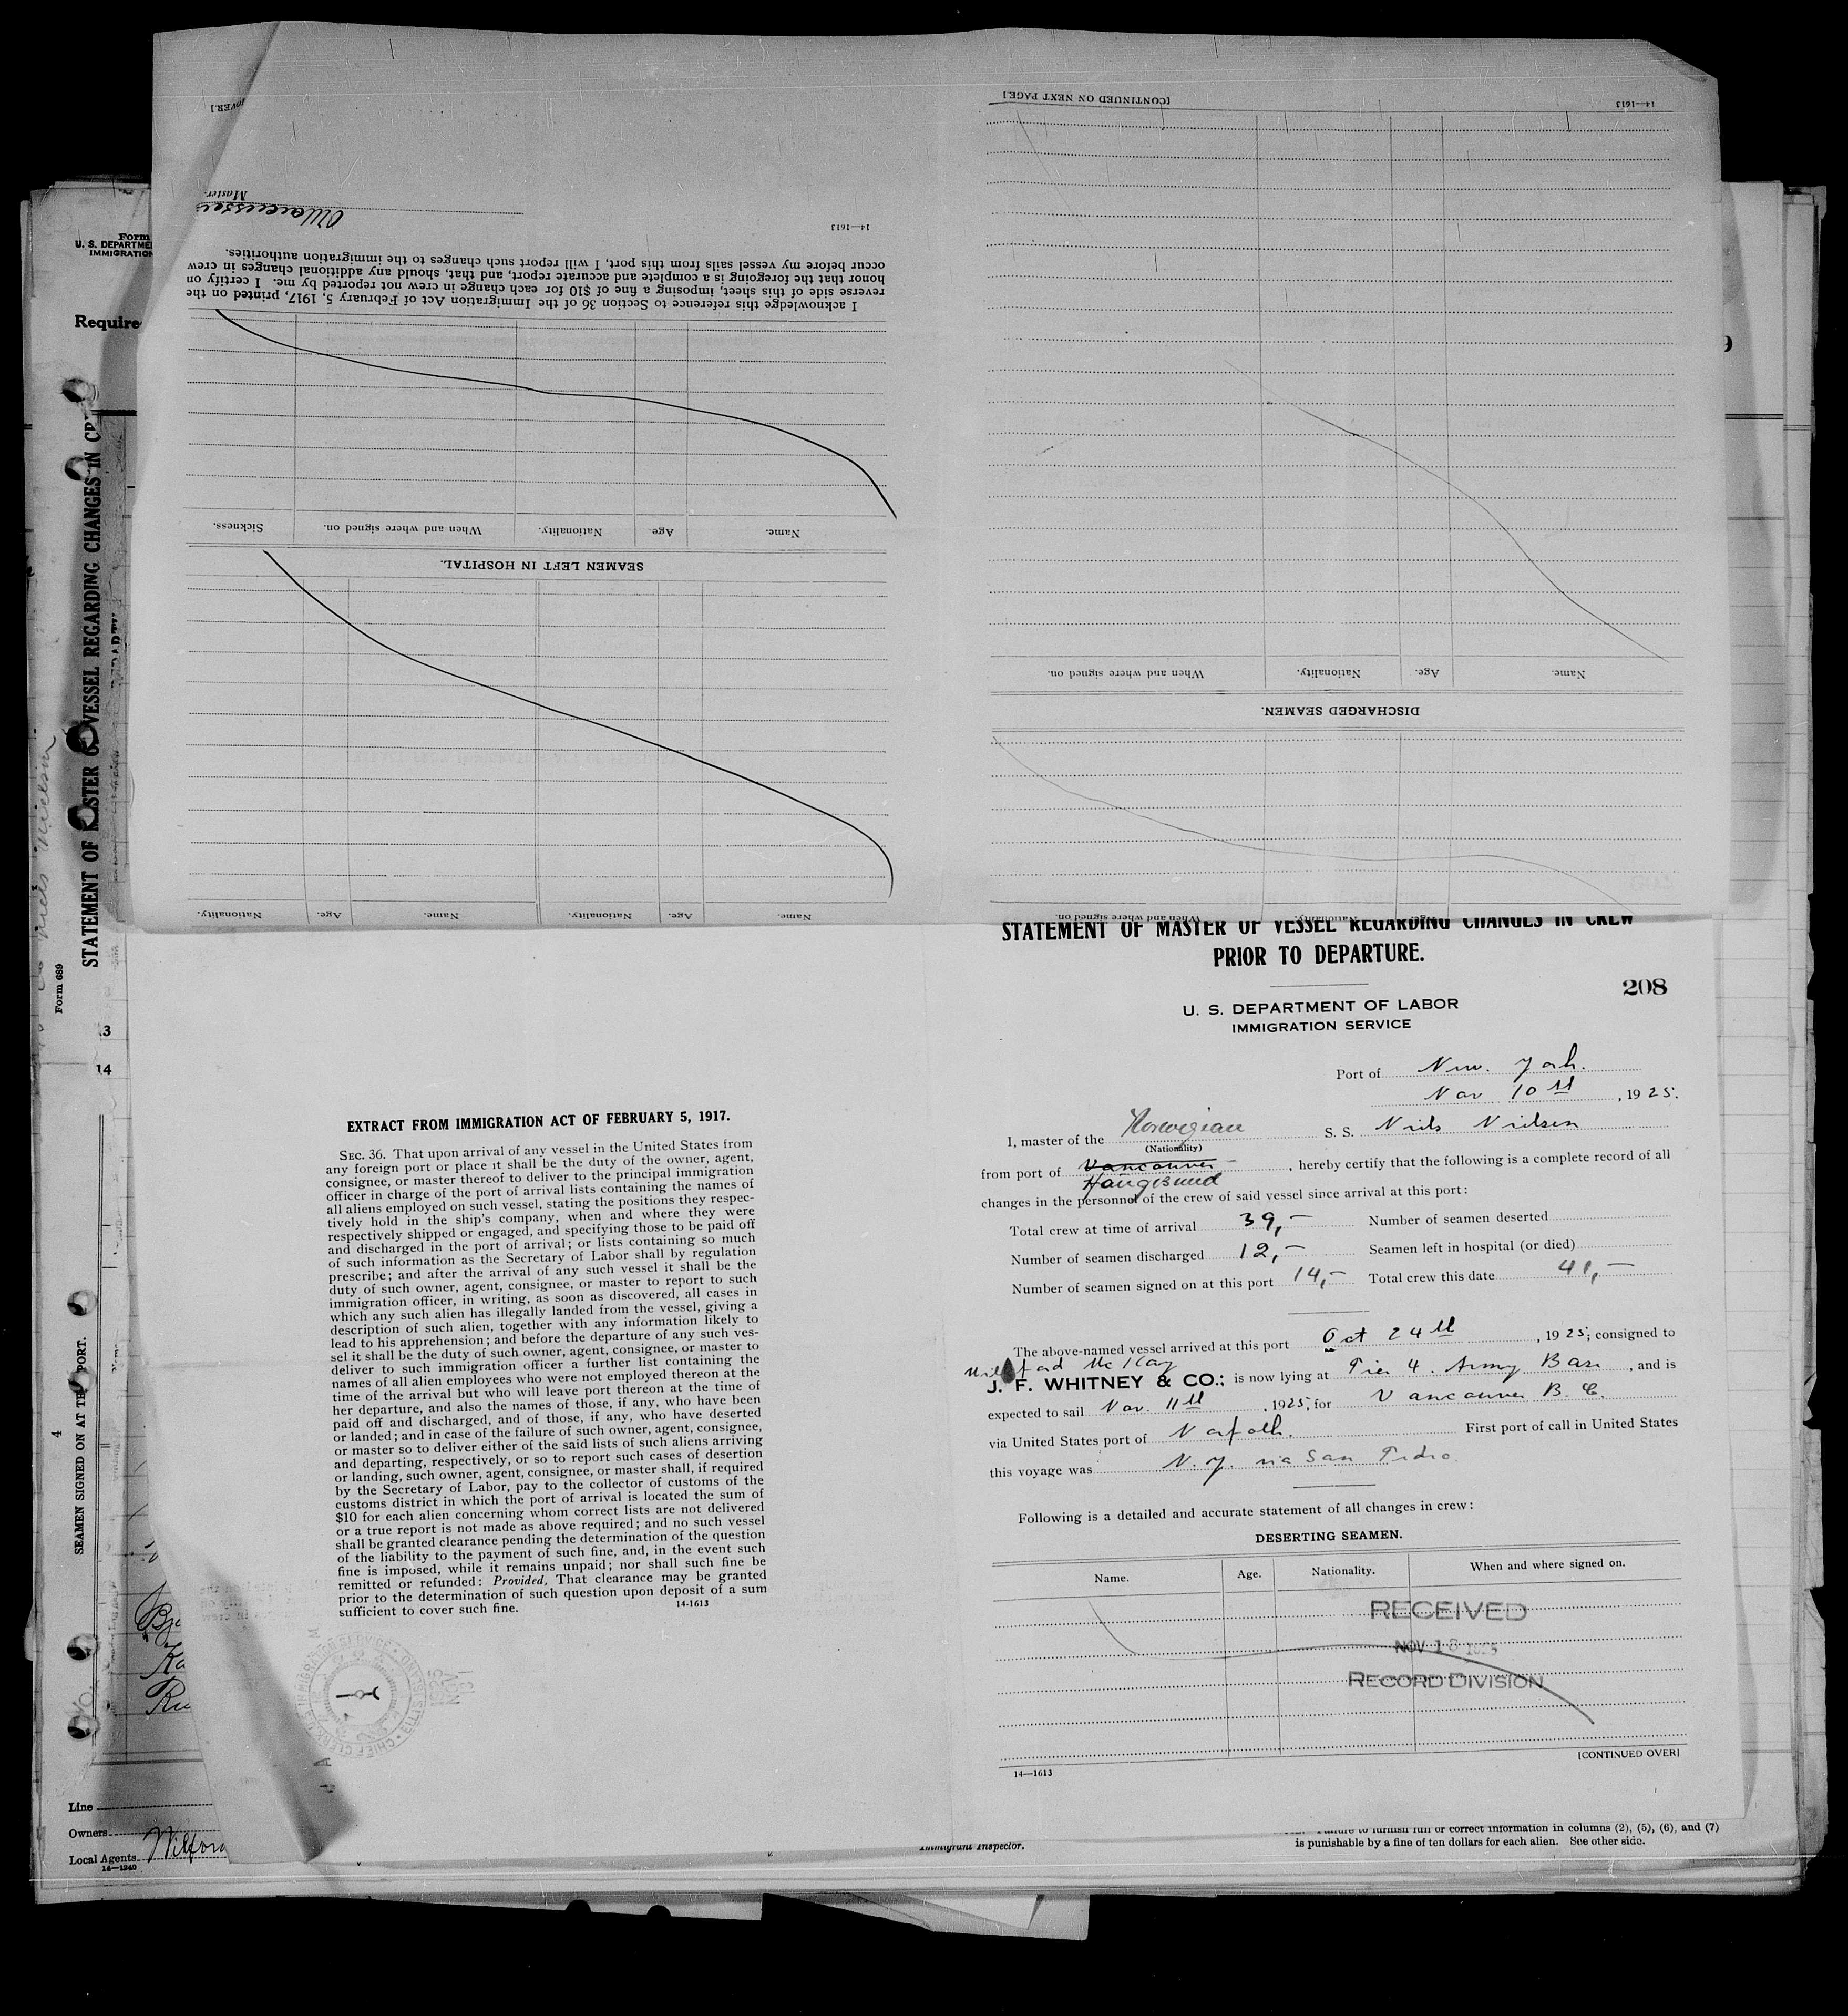 [OVER.]
Master.
14—1613
I acknowledge this reference to Section 36 of the Immigration Act of February 5, 1917, printed on the
reverse side of this sheet, imposing a fine of $10 for each change in crew not reported by me. I certify on
honor that the foregoing is a complete and accurate report, and that, should any additional changes in crew
occur before my vessel sails from this port, I will report such changes to the immigration authorities.
Name. Age Nationality. When and where signed on. Sickness.
SEAMEN LEFT IN HOSPITAL.
Name. Age. Nationality. Name. Age. Nationality.
[CONTINUED ON NEXT PAGE.]
14—1613
Name. Age. Nationality. When and where signed on.
DISCHARGED SEAMEN.
Nationality. When and where signed on.
Form
U. S. DEPARTME
IMMIGRATION
Require
STATEMENT OF MASTER OF VESSEL REGARDING CHANGES IN CR
Form 689
13
14
4
SEAMEN SIGNED ON AT THIS PORT.
Line
Owners
Local Agents Wilford
14—1240
EXTRACT FROM IMMIGRATION ACT OF FEBRUARY 5, 1917.
SEC. 36. That upon arrival of any vessel in the United States from
any foreign port or place it shall be the duty of the owner, agent,
consignee, or master thereof to deliver to the principal immigration
officer in charge of the port of arrival lists containing the names of
all aliens employed on such vessel, stating the positions they respec-
tively hold in the ship's company, when and where they were
respectively shipped or engaged, and specifying those to be paid off
and discharged in the port of arrival; or lists containing so much
of such information as the Secretary of Labor shall by regulation
prescribe; and after the arrival of any such vessel it shall be the
duty of such owner, agent, consignee, or master to report to such
immigration officer, in writing, as soon as discovered, all cases in
which any such alien has illegally landed from the vessel, giving a
description of such alien, together with any information likely to
lead to his apprehension; and before the departure of any such ves-
sel it shall be the duty of such owner, agent, consignee, or master to
deliver to such immigration officer a further list containing the
names of all alien employees who were not employed thereon at the
time of the arrival but who will leave port thereon at the time of
her departure, and also the names of those, if any, who have been
paid off and discharged, and of those, if any, who have deserted
or landed; and in case of the failure of such owner, agent, consignee,
or master so to deliver either of the said lists of such aliens arriving
and departing, respectively, or so to report such cases of desertion
or landing, such owner, agent, consignee, or master shall, if required
by the Secretary of Labor, pay to the collector of customs of the
customs district in which the port of arrival is located the sum of
$10 for each alien concerning whom correct lists are not delivered
or a true report is not made as above required; and no such vessel
shall be granted clearance pending the determination of the question
of the liability to the payment of such fine, and, in the event such
fine is imposed, while it remains unpaid; nor shall such fine be
remitted or refunded: Provided, That clearance may be granted
prior to the determination of such question upon deposit of a sum
sufficient to cover such fine.
14-1613
STATEMENT OF MASTER OF VESSEL REGARDING CHANGES IN CREW
PRIOR TO DEPARTURE.
208
U. S. DEPARTMENT OF LABOR
IMMIGRATION SERVICE
Port of New York.
Nov 10th, 1925.
I, master of the Norwegian S. S. Niels Nielsen
(Nationality)
from port of Vancouver, hereby certify that the following is a complete record of all
Haugesund
changes in the personnel of the crew of said vessel since arrival at this port:
Total crew at time of arrival 39,— Number of seamen deserted
Number of seamen discharged 12,— Seamen left in hospital (or died)
Number of seamen signed on at this port 14,— Total crew this date 41,—
The above-named vessel arrived at this port Oct 24th, 1925; consigned to
Wilford McKay
J. F. WHITNEY & CO.; is now lying at Pier 4. Army Base, and is
expected to sail Nov. 11th, 1925; for Vancouver B. C.
via United States port of Norfolk. First port of call in United States
this voyage was N. Y. via San Pedro.
Following is a detailed and accurate statement of all changes in crew:
DESERTING SEAMEN.
Name. Age. Nationality. When and where signed on.
RECEIVED
NOV 18 1925
RECORD DIVISION
[CONTINUED OVER]
14—1613
Immigrant Inspector.
to furnish full or correct information in columns (2), (5), (6), and (7)
is punishable by a fine of ten dollars for each alien. See other side.